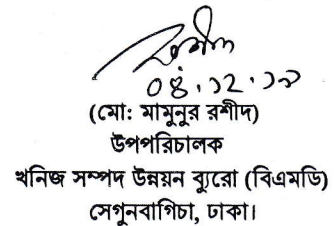 ০৪.১২.১৯
(মো: মামুনুর রশীদ)
উপপরিচালক
খনিজ সম্পদ উন্নয়ন ব্যুরো (বিএমডি)
সেগুনবাগিচা, ঢাকা।